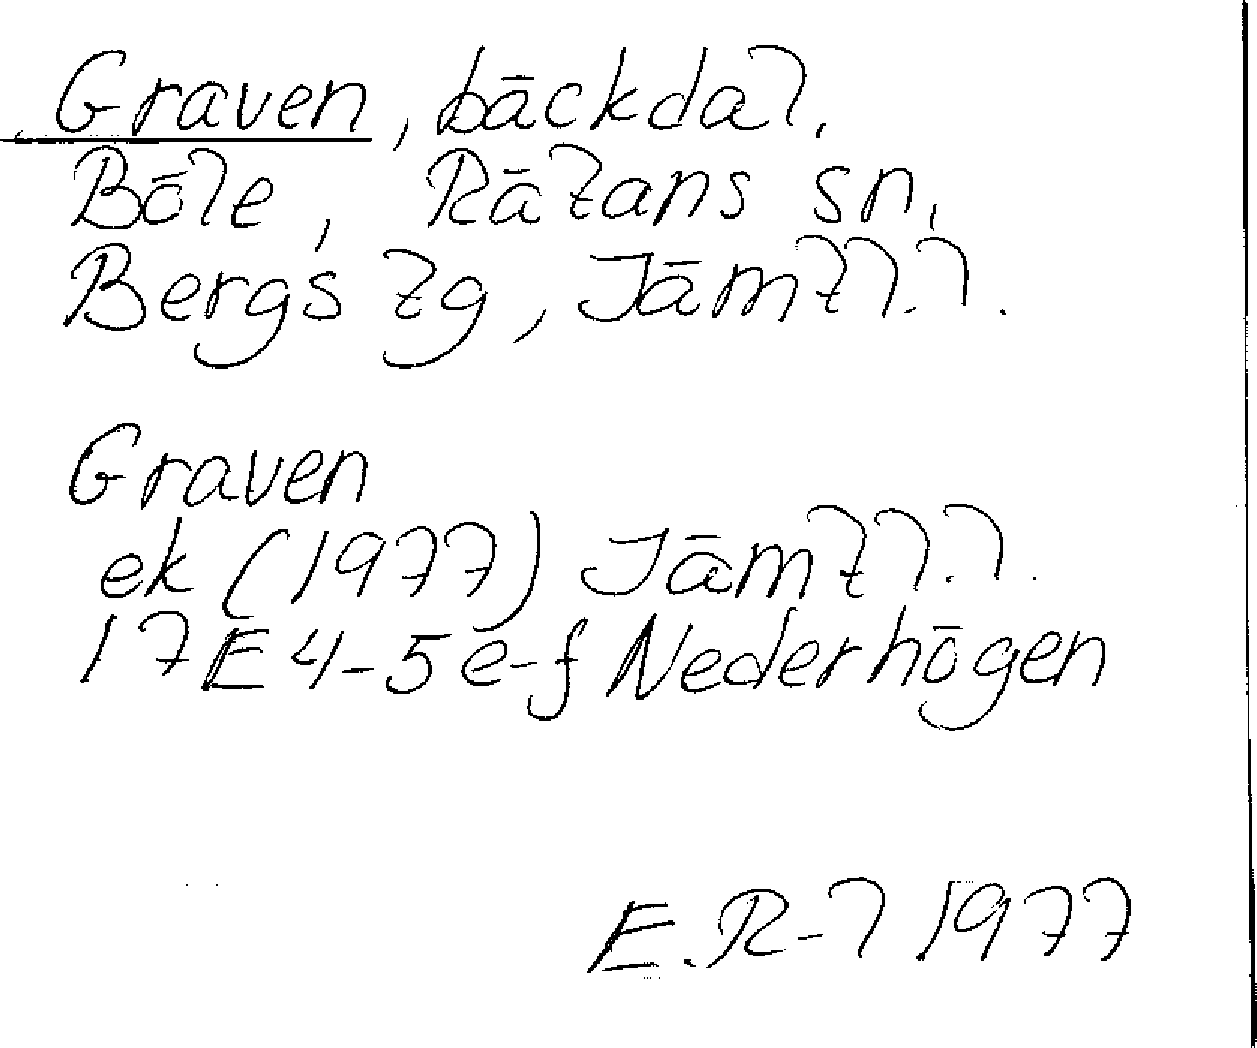 Graven, bäckdal.
Böle, Rätans sn,
Bergs tg, Jämtl.l.
Graven
ek (1977) Jämtl.l.
17E 4-5 e-f Nederhögen
E.R-l 1977